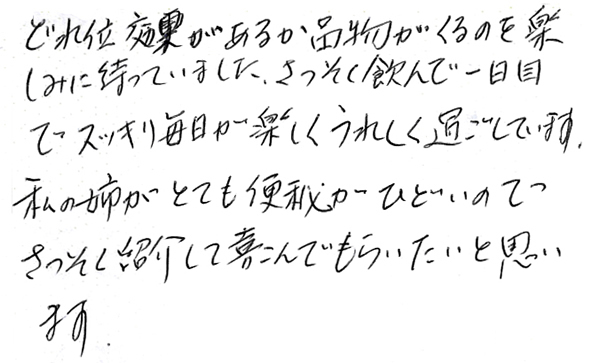 どれ位効果があるか品物がくるのを楽
しみに待っていました、さっそく飲んで一日目
でスッキリ毎日が楽しくうれしく過ごしています。
私の姉がとても便秘がひどいので
さっそく紹介して喜こんでもらいたいと思い
ます。